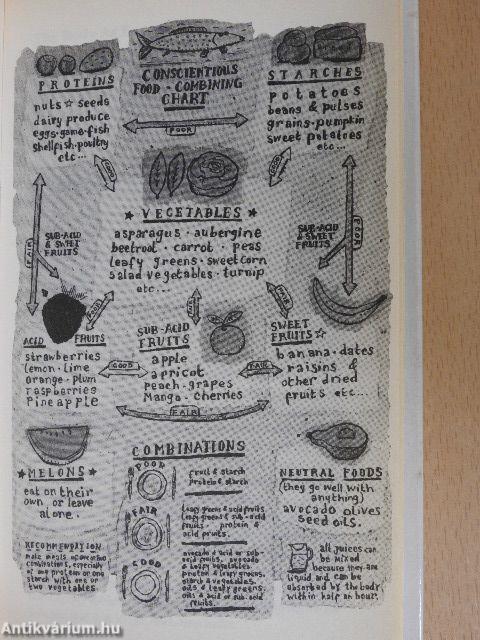 CONSCIENTIOUS
FOOD - COMBINING
CHART
PROTEINS
nuts ☆ seeds
dairy produce
eggs·game·fish
shellfish·poultry
etc...
STARCHES
potatoes
beans & pulses
grains·pumpkin
sweet potatoes
etc...
POOR
GOOD
GOOD
★ VEGETABLES ★
asparagus · aubergine
beetroot · carrot · peas
leafy greens · sweetcorn
salad vegetables · turnip
etc...
FAIR
SUB-ACID
& SWEET
FRUITS
SUB-ACID
& SWEET
FRUITS
POOR
ACID FRUITS
strawberries
lemon · lime
orange · plum
raspberries
Pineapple
GOOD
SUB-ACID
FRUITS
apple
apricot
peach · grapes
Mango · cherries
FAIR
SWEET
FRUITS☆
banana · dates
raisins &
other dried
fruits etc...
FAIR
★ MELONS ★
eat on their
own, or leave
alone.
RECOMMENDATION
COMBINATIONS
POOR
fruit & starch
protein & starch
FAIR
leafy greens & acid fruits
leafy greens & sub-acid
fruits · protein &
acid fruits
GOOD
avocado & acid or sub-
acid fruits, avocado
& leafy vegetables
protein & leafy greens,
starch & vegetables.
oils & leafy greens
oils & acid or sub-acid
fruits.
NEUTRAL FOODS
(they go well with
anything)
avocado olives
seed oils.
all juices can
be mixed
because they are
liquid and can be
absorbed by the body
within half an hour.
Antikvárium.hu